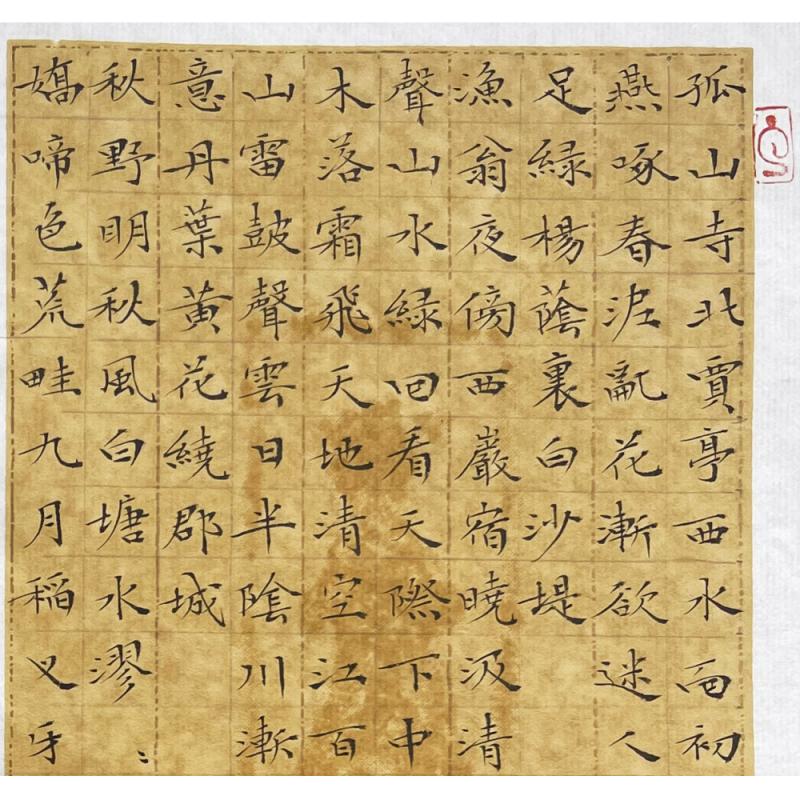 孤山寺北賈亭西水面初
燕啄春泥亂花漸欲迷人
足緑楊蔭裏白沙堤
漁翁夜傍西巖宿曉汲清
聲山水緑回看天際下中
木落霜飛天地清空江百
山雷鼓聲雲日半陰川漸
意丹葉黃花繞郡城
秋野明秋風白塘水漻〻
嬌啼色荒畦九月稻叉牙